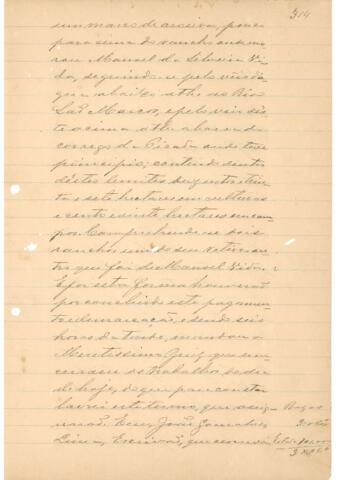 314
um marco de aroeira, pouco
para cima do rancho onde mo-
rou Manoel da Silveira Vi-
da, seguindo e pelo veio da
agua abaixo athe o Rio
São Marcos, e pelo veio des
te acima athe a barra do
corrego da Picada onde teve
principio; contendo dentro
destes limites duzentos e trin-
ta e sete hectares em culturas
e cento e vinte hectares em cam-
pos. Comprehende-se dois
ranchos um do seu e outro
que foi de Manoel
E por esta forma houverão
por concluido este pagamen-
to e demarcação, e sendo seis
horas da tarde, mandou o
Meritissimo Juiz que se en-
cerrasse os trabalhos
de hoje, do que para constar
lavrei este termo, que assig-
narão. Eu, João Gonçalves
Lima, Escrivão, que escrevi